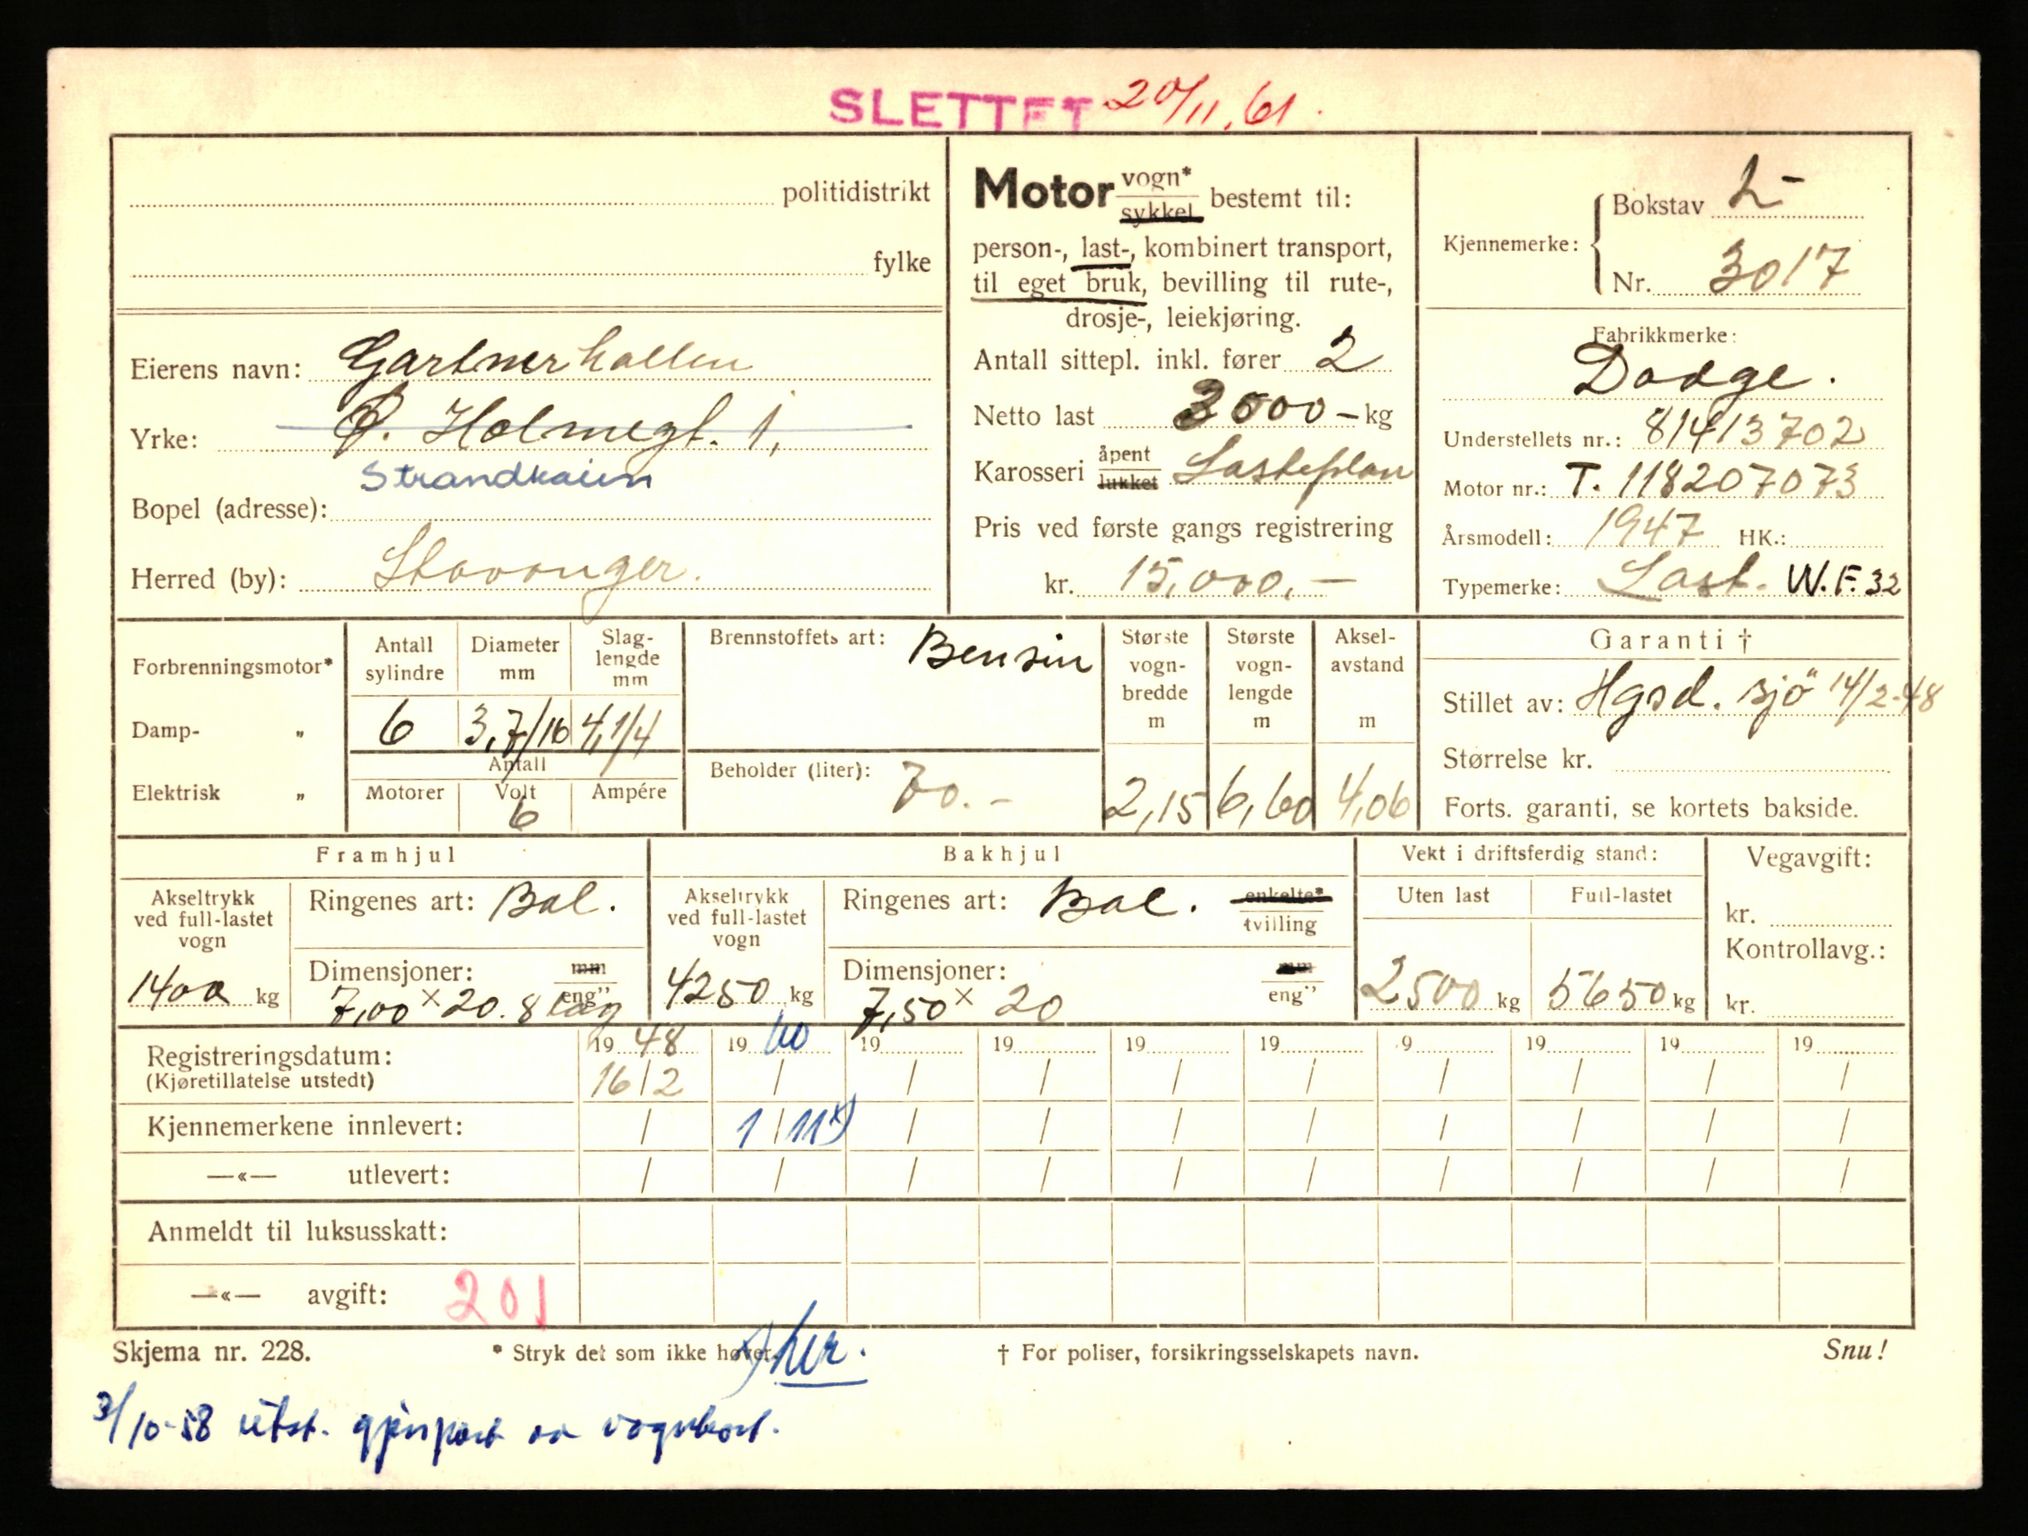 SLETTET 20/11.61.
politidistrikt
fylke
Eierens navn: Gartnerhallen
Yrke: Ø. Holmegt. 1,
Strandkaien
Bopel (adresse):
Herred (by): Stavanger.
Motor vogn* sykkel bestemt til:
person-, last-, kombinert transport,
til eget bruk, bevilling til rute-,
drosje-, leiekjøring.
Antall sittepl. inkl. fører 2
Netto last 3000 - kg
Karosseri åpent lukket Lasteplan
Pris ved første gangs registrering
kr. 15,000,-
Kjennemerke: Bokstav L-
Nr. 3017
Fabrikkmerke:
Dodge.
Understellets nr.: 81413702
Motor nr.: T. 118207073
Årsmodell: 1947 HK.:
Typemerke: Last. W.F. 32
Forbrenningsmotor*
Damp- „
Elektrisk „
Antall sylindre
Diameter mm
Slag-lengde mm
6 3,7/16 4,1/4
Antall
Motorer Volt Ampére
6
Brennstoffets art: Bensin
Beholder (liter): 70.-
Største vogn-bredde m
2,15
Største vogn-lengde m
6,60
Aksel-avstand m
4,06
Garanti †
Stillet av: Hgsd. sjö 14/2-48
Størrelse kr.
Forts. garanti, se kortets bakside.
Framhjul
Akseltrykk ved full-lastet vogn
1400 kg
Ringenes art: Bal.
Dimensjoner: mm eng"
7,00 x 20. 8 lag
Bakhjul
Akseltrykk ved full-lastet vogn
4250 kg
Ringenes art: Bal. enkelte* tvilling
Dimensjoner: mm eng"
7,50 x 20
Vekt i driftsferdig stand:
Uten last Full-lastet
2500 kg 5650 kg
Vegavgift:
kr.
Kontrollavg.:
kr.
Registreringsdatum: 19 48 19 60 19 19 19 19 9 19 19 19
(Kjøretillatelse utstedt) 16/2 / / / / / / / / /
Kjennemerkene innlevert: / 1/11 x) / / / / / / / /
—«— utlevert: / / / / / / / / / /
Anmeldt til luksusskatt:
—«— avgift: 201
Skjema nr. 228.
* Stryk det som ikke høver.
x) her.
† For poliser, forsikringsselskapets navn.
Snu!
3/10-58 utst. gjenpart av vognkort.